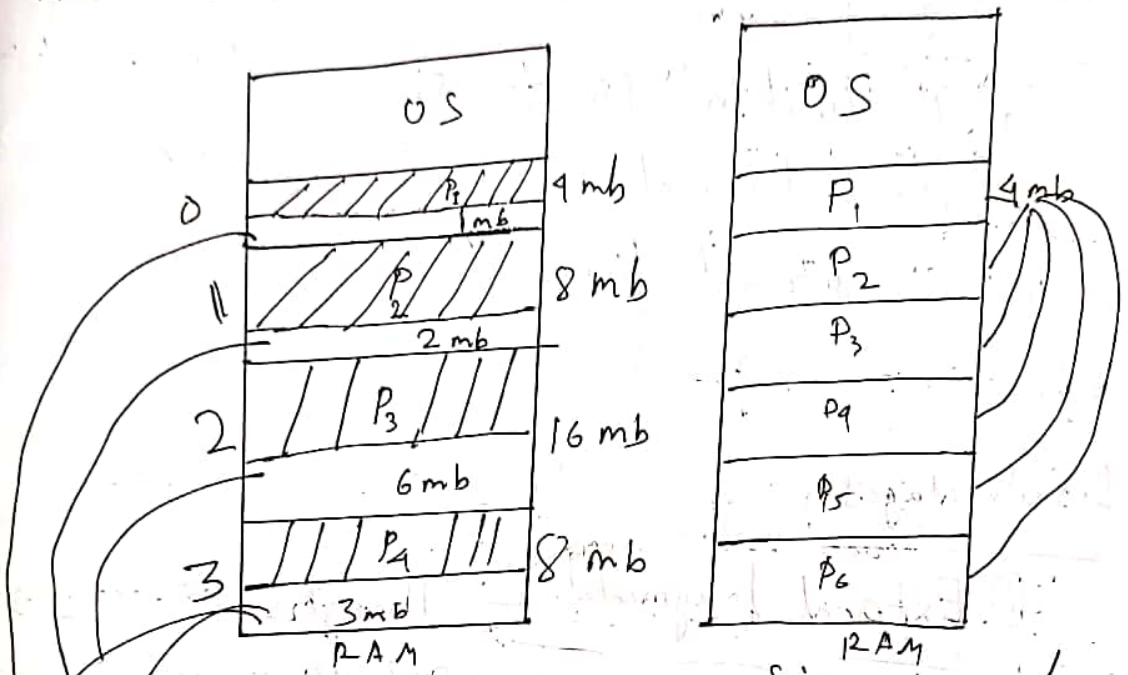 OS
P1
4 mb
0
1 mb
P2
8 mb
1
2 mb
P3
16 mb
2
6 mb
P4
8 mb
3
3 mb
RAM
OS
P1
4 mb
P2
P3
P4
P5
P6
RAM